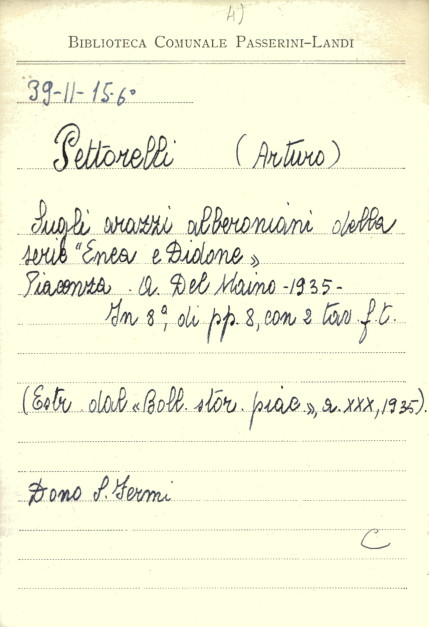 4)
BIBLIOTECA COMUNALE PASSERINI-LANDI
39-II-15-6°
Pettorelli (Arturo)
Sugli arazzi alberoniani della
serie "Enea e Didone"
Piacenza. A. Del Maino-1935-
In 8°, di pp. 8, con 2 tav. f. t.
(Estr. dal «Boll. stor. piac.», a. XXX, 1935).
Dono S. Fermi
C